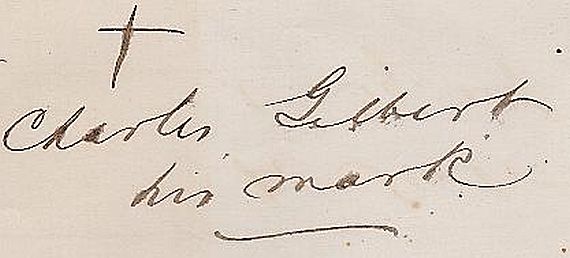 Charles Gilbert
his mark